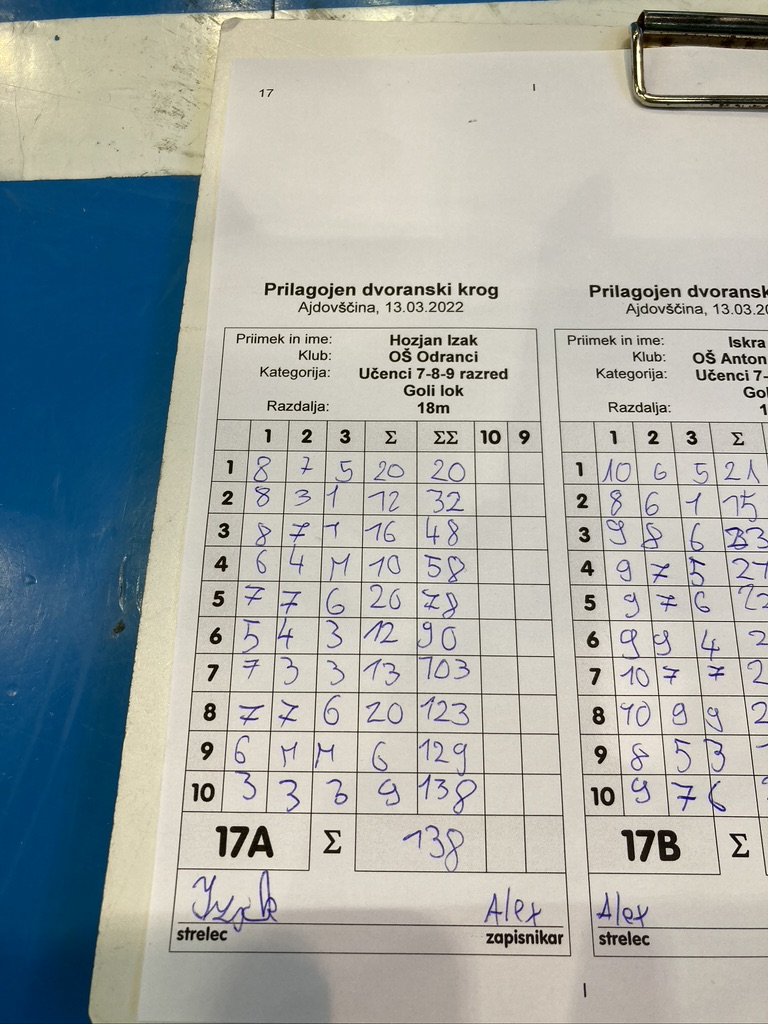 17 I
Prilagojen dvoranski krog
Ajdovščina, 13.03.2022
Priimek in ime: Hozjan Izak
Klub: OŠ Odranci
Kategorija: Učenci 7-8-9 razred
Goli lok
Razdalja: 18m
1 2 3 Σ ΣΣ 10 9
1 8 7 5 20 20
2 8 3 1 12 32
3 8 7 1 16 48
4 6 4 M 10 58
5 7 7 6 20 78
6 5 4 3 12 90
7 7 3 3 13 103
8 7 7 6 20 123
9 6 M M 6 129
10 3 3 3 9 138
17A Σ 138
Izak Alex
strelec zapisnikar
Prilagojen dvoransk
Ajdovščina, 13.03.20
Priimek in ime: Iskra
Klub: OŠ Anton
Kategorija: Učenci 7-
Gol
Razdalja: 1
1 2 3 Σ
1 10 6 5 21
2 8 6 1 15
3 9 8 6 23
4 9 7 5 21
5 9 7 6 22
6 9 9 4 2
7 10 7 7 2
8 10 9 9 2
9 8 5 3 1
10 9 7 6 2
17B Σ
Alex
strelec
I